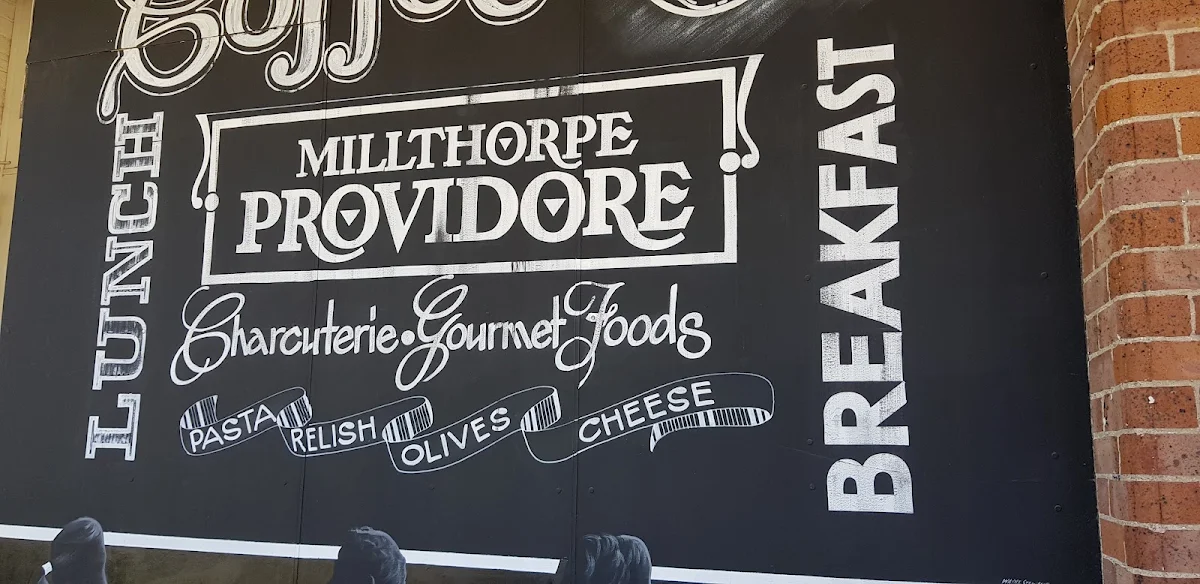 Coffee
LUNCH
MILLTHORPE
PROVIDORE
BREAKFAST
Charcuterie • Gourmet Foods
PASTA RELISH OLIVES CHEESE